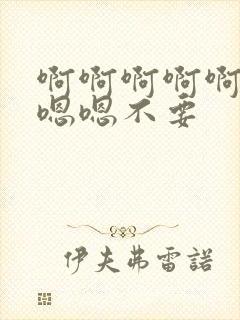 啊啊啊啊啊
嗯嗯不要
伊夫弗雷諾